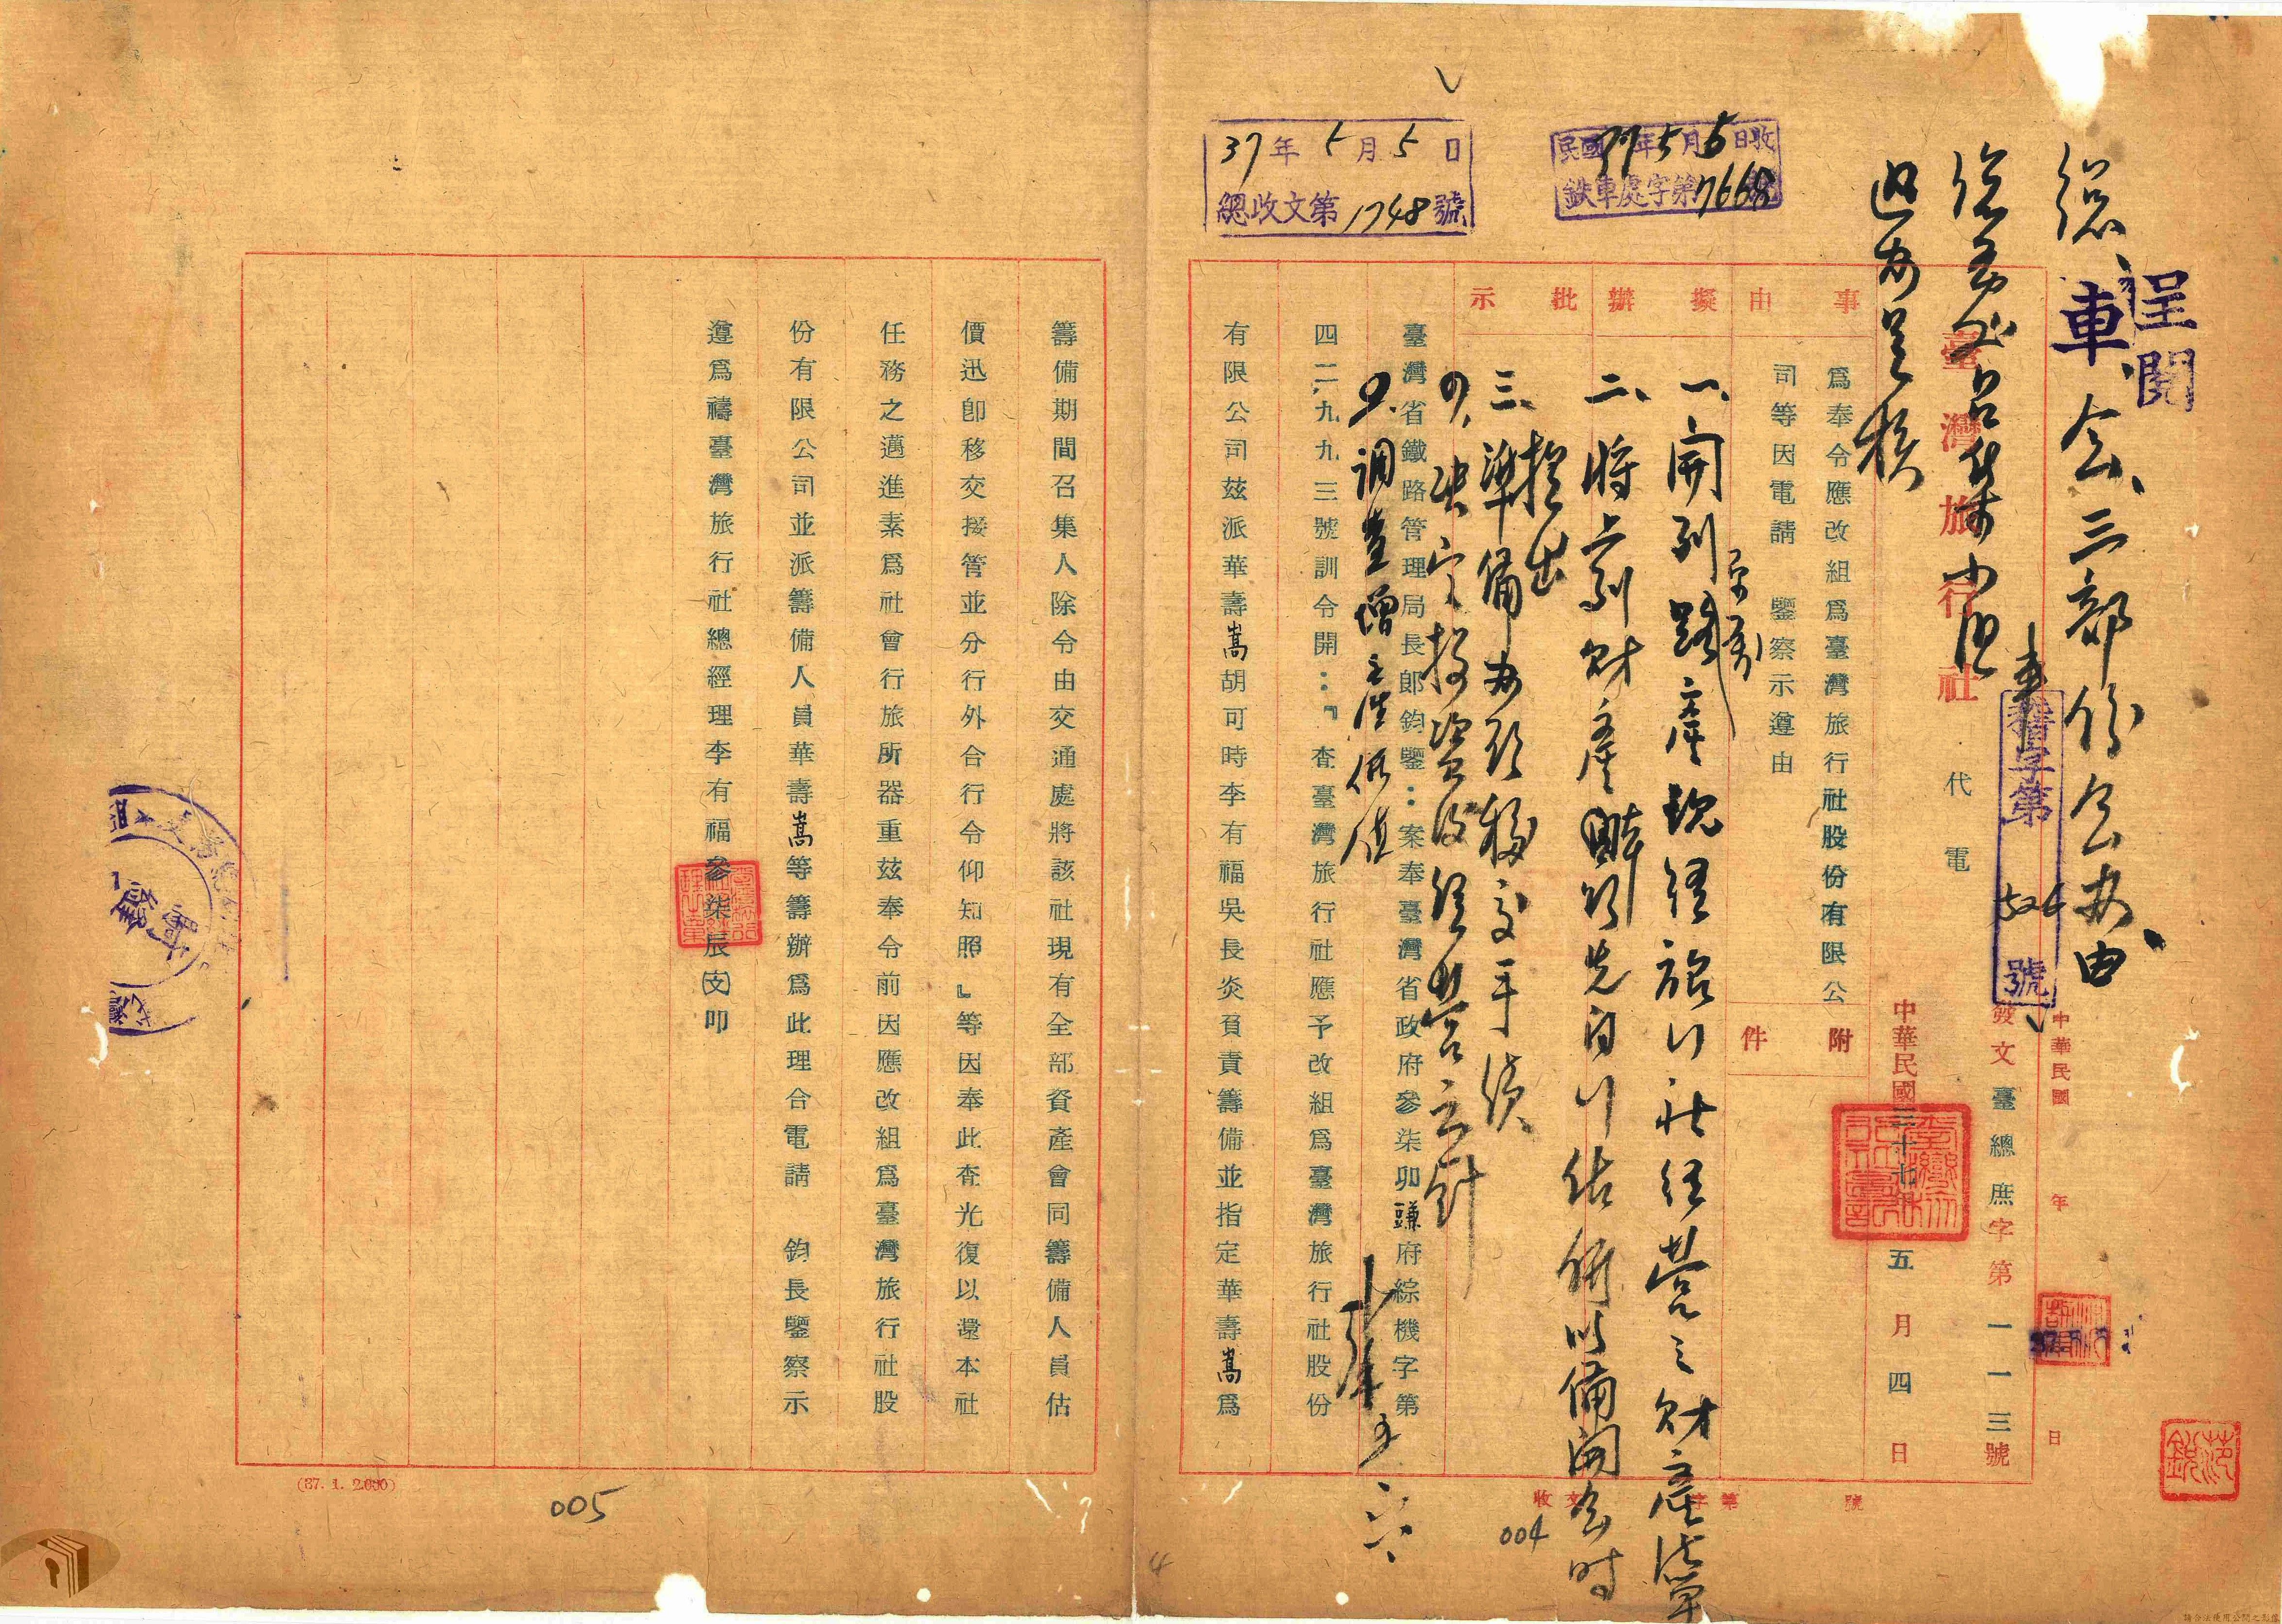 呈閱
總、車、会、三部份会办、由
迅办呈核
37年5月5日
總收文第1748號
民國37年5月6日收
鉄車處字第7668號
臺灣旅行社 代電
字第 526 號
中華民國 年 月 日
發文臺總庶字第一一一三號
中華民國三十七年五月四日
事由
擬辦
批示
附件
為奉令應改組為臺灣旅行社股份有限公
司等因電請 鑒察示遵由
一、開列路產現經旅行社經營之財產清單
二、將上列財產賬額先自行估價以備開会時
提出
三、準備办理移交手續
四、決定投資後經營方針
五、調查增之產估值
臺灣省鐵路管理局長郎鈞鑒：案奉臺灣省政府參柒卯謙府綜機字第
四二九九三號訓令開：『查臺灣旅行社應予改組為臺灣旅行社股份
有限公司茲派華壽嵩胡可時李有福吳長炎負責籌備並指定華壽嵩為
籌備期間召集人除令由交通處將該社現有全部資產會同籌備人員估
價迅卽移交接管並分行外合行令仰知照』等因奉此查光復以還本社
任務之邁進素為社會行旅所器重茲奉令前因應改組為臺灣旅行社股
份有限公司並派籌備人員華壽嵩等籌辦為此理合電請 鈞長鑒察示
遵為禱臺灣旅行社總經理李有福參柒辰㊛叩
收文 字第 號
004
(37. 1. 2.000)
005
4